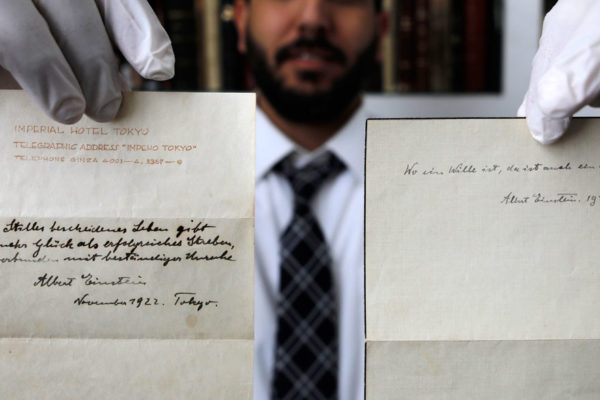 IMPERIAL HOTEL TOKYO
TELEGRAPHIC ADDRESS "IMPEHO TOKYO"
TELEPHONE GINZA 4001-4, 3367-9
Stilles bescheidenes Leben gibt
mehr Glück als erfolgreiches Streben,
verbunden mit beständiger Unruhe
Albert Einstein
November 1922. Tokyo.
Wo ein Wille ist, da ist auch ein
Albert Einstein. 19